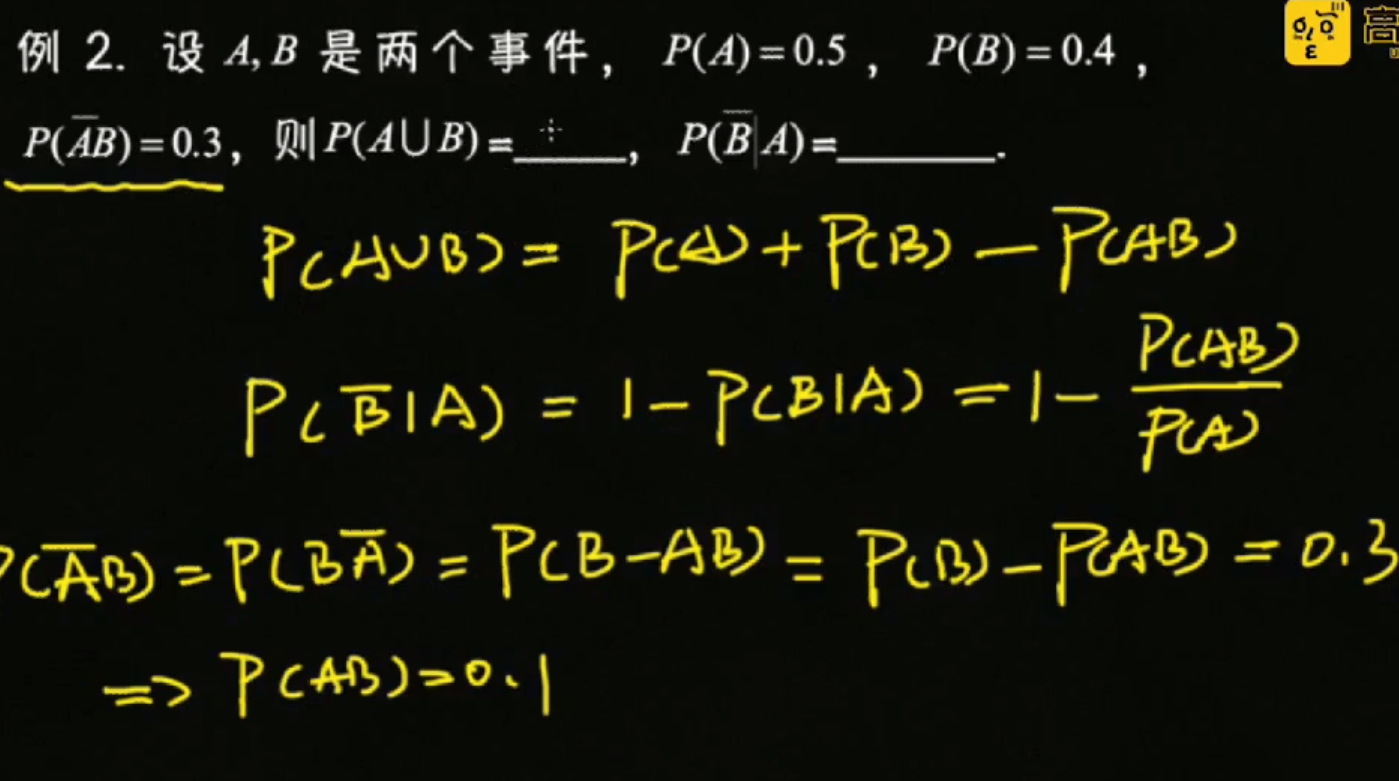 例 2. 设 A, B 是两个事件， P(A) = 0.5 ， P(B) = 0.4 ，
P(A̅B) = 0.3，则 P(A∪B) =______，P(B̅|A)=________.
P(A∪B) = P(A) + P(B) − P(AB)
P(B̅|A) = 1 − P(B|A) = 1 − P(AB)/P(A)
P(A̅B) = P(BA̅) = P(B−AB) = P(B) − P(AB) = 0.3
=> P(AB) = 0.1
高